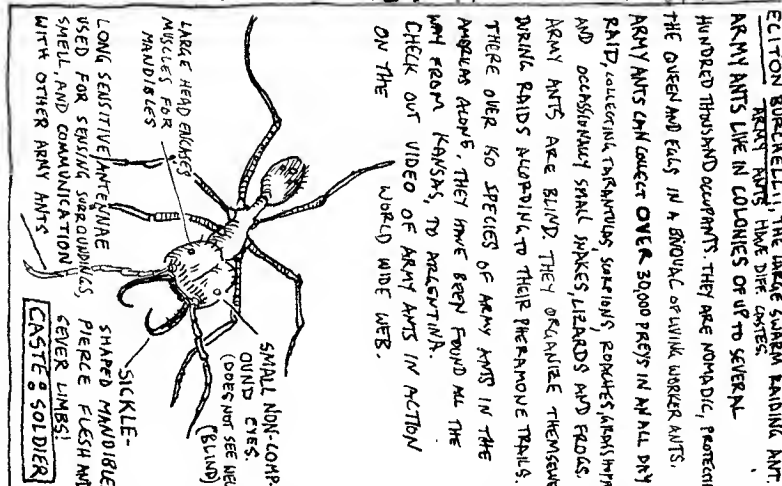 ECITON BURRELLII; THE LARGE SWARM RAIDING ANT.
ARMY ANTS HAVE DIFF. CASTES.
ARMY ANTS LIVE IN COLONIES OF UP TO SEVERAL
HUNDRED THOUSAND OCCUPANTS. THEY ARE NOMADIC, PROTECTI
THE QUEEN AND EGGS IN A BIVOUAC OF LIVING WORKER ANTS.
ARMY ANTS CAN COLLECT OVER 30,000 PREYS IN AN ALL DAY
RAID, COLLECTING TARANTULAS, SCORPIONS, ROACHES,
AND OCCASSIONALLY SMALL SNAKES, LIZARDS AND FROGS.
ARMY ANTS ARE BLIND. THEY ORGANIZE THEMSELVE
DURING RAIDS ACCORDING TO THEIR PHERAMONE TRAILS.
THERE OVER 150 SPECIES OF ARMY ANTS IN THE
AMERICAS ALONE. THEY HAVE BEEN FOUND ALL THE
WAY FROM KANSAS, TO ARGENTINA.
CHECK OUT VIDEO OF ARMY ANTS IN ACTION
ON THE WORLD WIDE WEB.
LARGE HEAD ENCASES
MUSCLES FOR
MANDIBLES
SMALL NON-COMP-
OUND EYES.
(DOES NOT SEE WEL
(BLIND)
LONG SENSITIVE ANTENNAE
USED FOR SENSING SURROUNDINGS,
SMELL, AND COMMUNICATION
WITH OTHER ARMY ANTS
SICKLE-
SHAPED MANDIBLE
PIERCE FLESH AND
SEVER LIMBS!
CASTE: SOLDIER